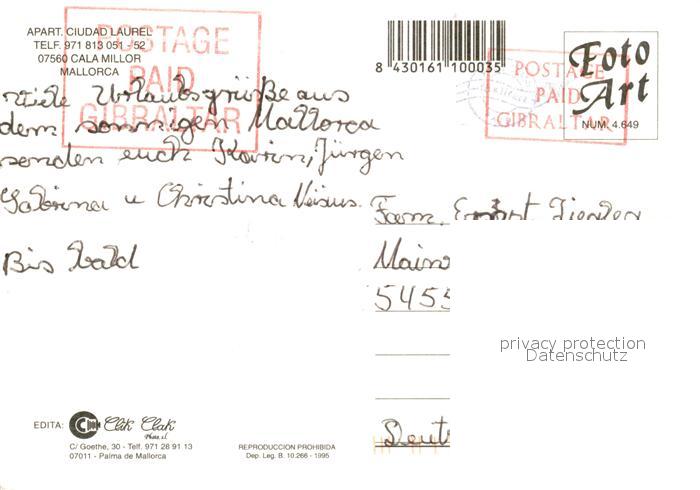 APART. CIUDAD LAUREL
TELF. 971 813 051 - 52
07560 CALA MILLOR
MALLORCA
POSTAGE
PAID
GIBRALTAR
viele Urlaubsgrüße aus
dem sonnigem Mallorca
senden euch Karin, Jürgen
Sabrina u Christina
Bis bald
8 430161 100035
POSTAGE
PAID
GIBRALTAR
Foto
Art
NUM. 4.649
Fam. Ernst
Mainz
5455
Deut
privacy protection
Datenschutz
EDITA: Clik Clak
Photo, s.l.
C/ Goethe, 30 - Telf. 971 28 91 13
07011 - Palma de Mallorca
REPRODUCCION PROHIBIDA
Dep. Leg. B. 10.266 - 1995